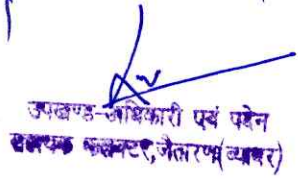 उपखण्ड-अधिकारी एवं पदेन
सहायक कलक्टर, जैतारण (ब्यावर)